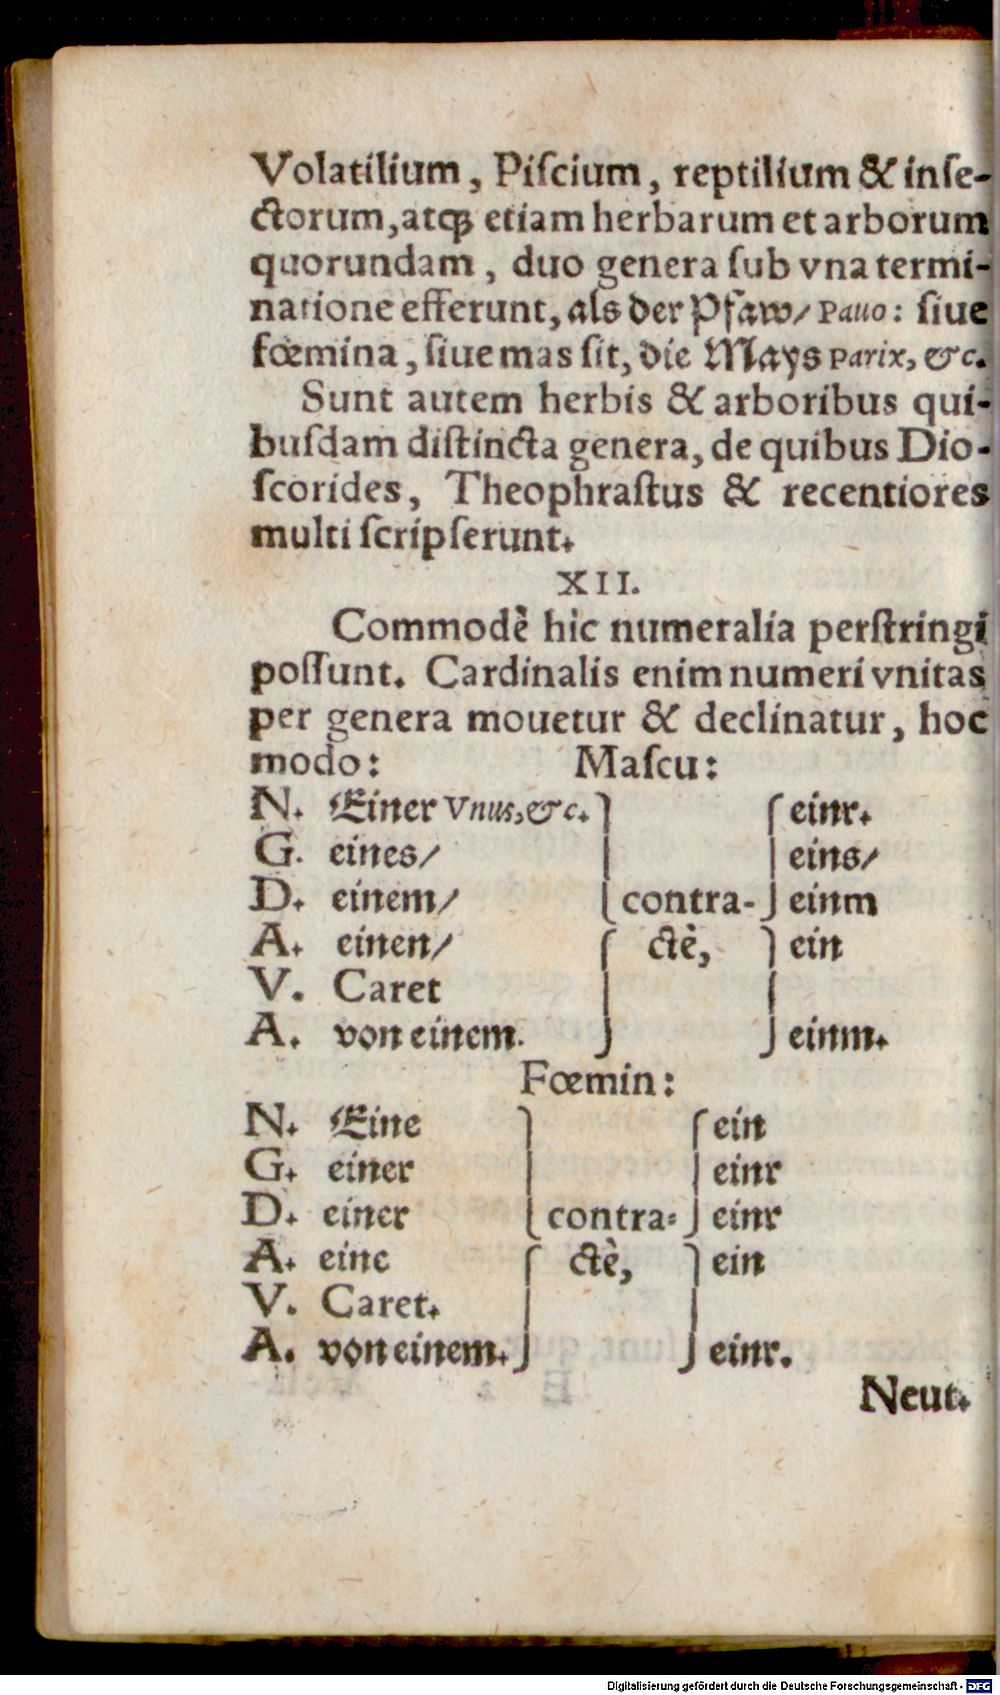 Volatilium, Piſcium, reptilium & inſe-
ctorum, atq́ꝫ etiam herbarum et arborum
quorundam, duo genera ſub vna termi-
natione efferunt, als der Pfaw/ Pauo: ſiue
fœmina, ſiue mas ſit, die Mays parix, &c.
Sunt autem herbis & arboribus qui-
buſdam diſtincta genera, de quibus Dio-
ſcorides, Theophraſtus & recentiores
multi ſcripſerunt.
XII.
Commodè hic numeralia perſtringi
poſſunt. Cardinalis enim numeri vnitas
per genera mouetur & declinatur, hoc
modo: Maſcu:
N. Einer Vnus, &c. einr.
G. eines/ eins/
D. einem/ contra- einm
A. einen/ ctè, ein
V. Caret
A. von einem. einm.
Fœmin:
N. Eine ein
G. einer einr
D. einer contra- einr
A. eine ctè, ein
V. Caret.
A. von einem. einr.
Neut.
Digitalisierung gefördert durch die Deutsche Forschungsgemeinschaft - DFG